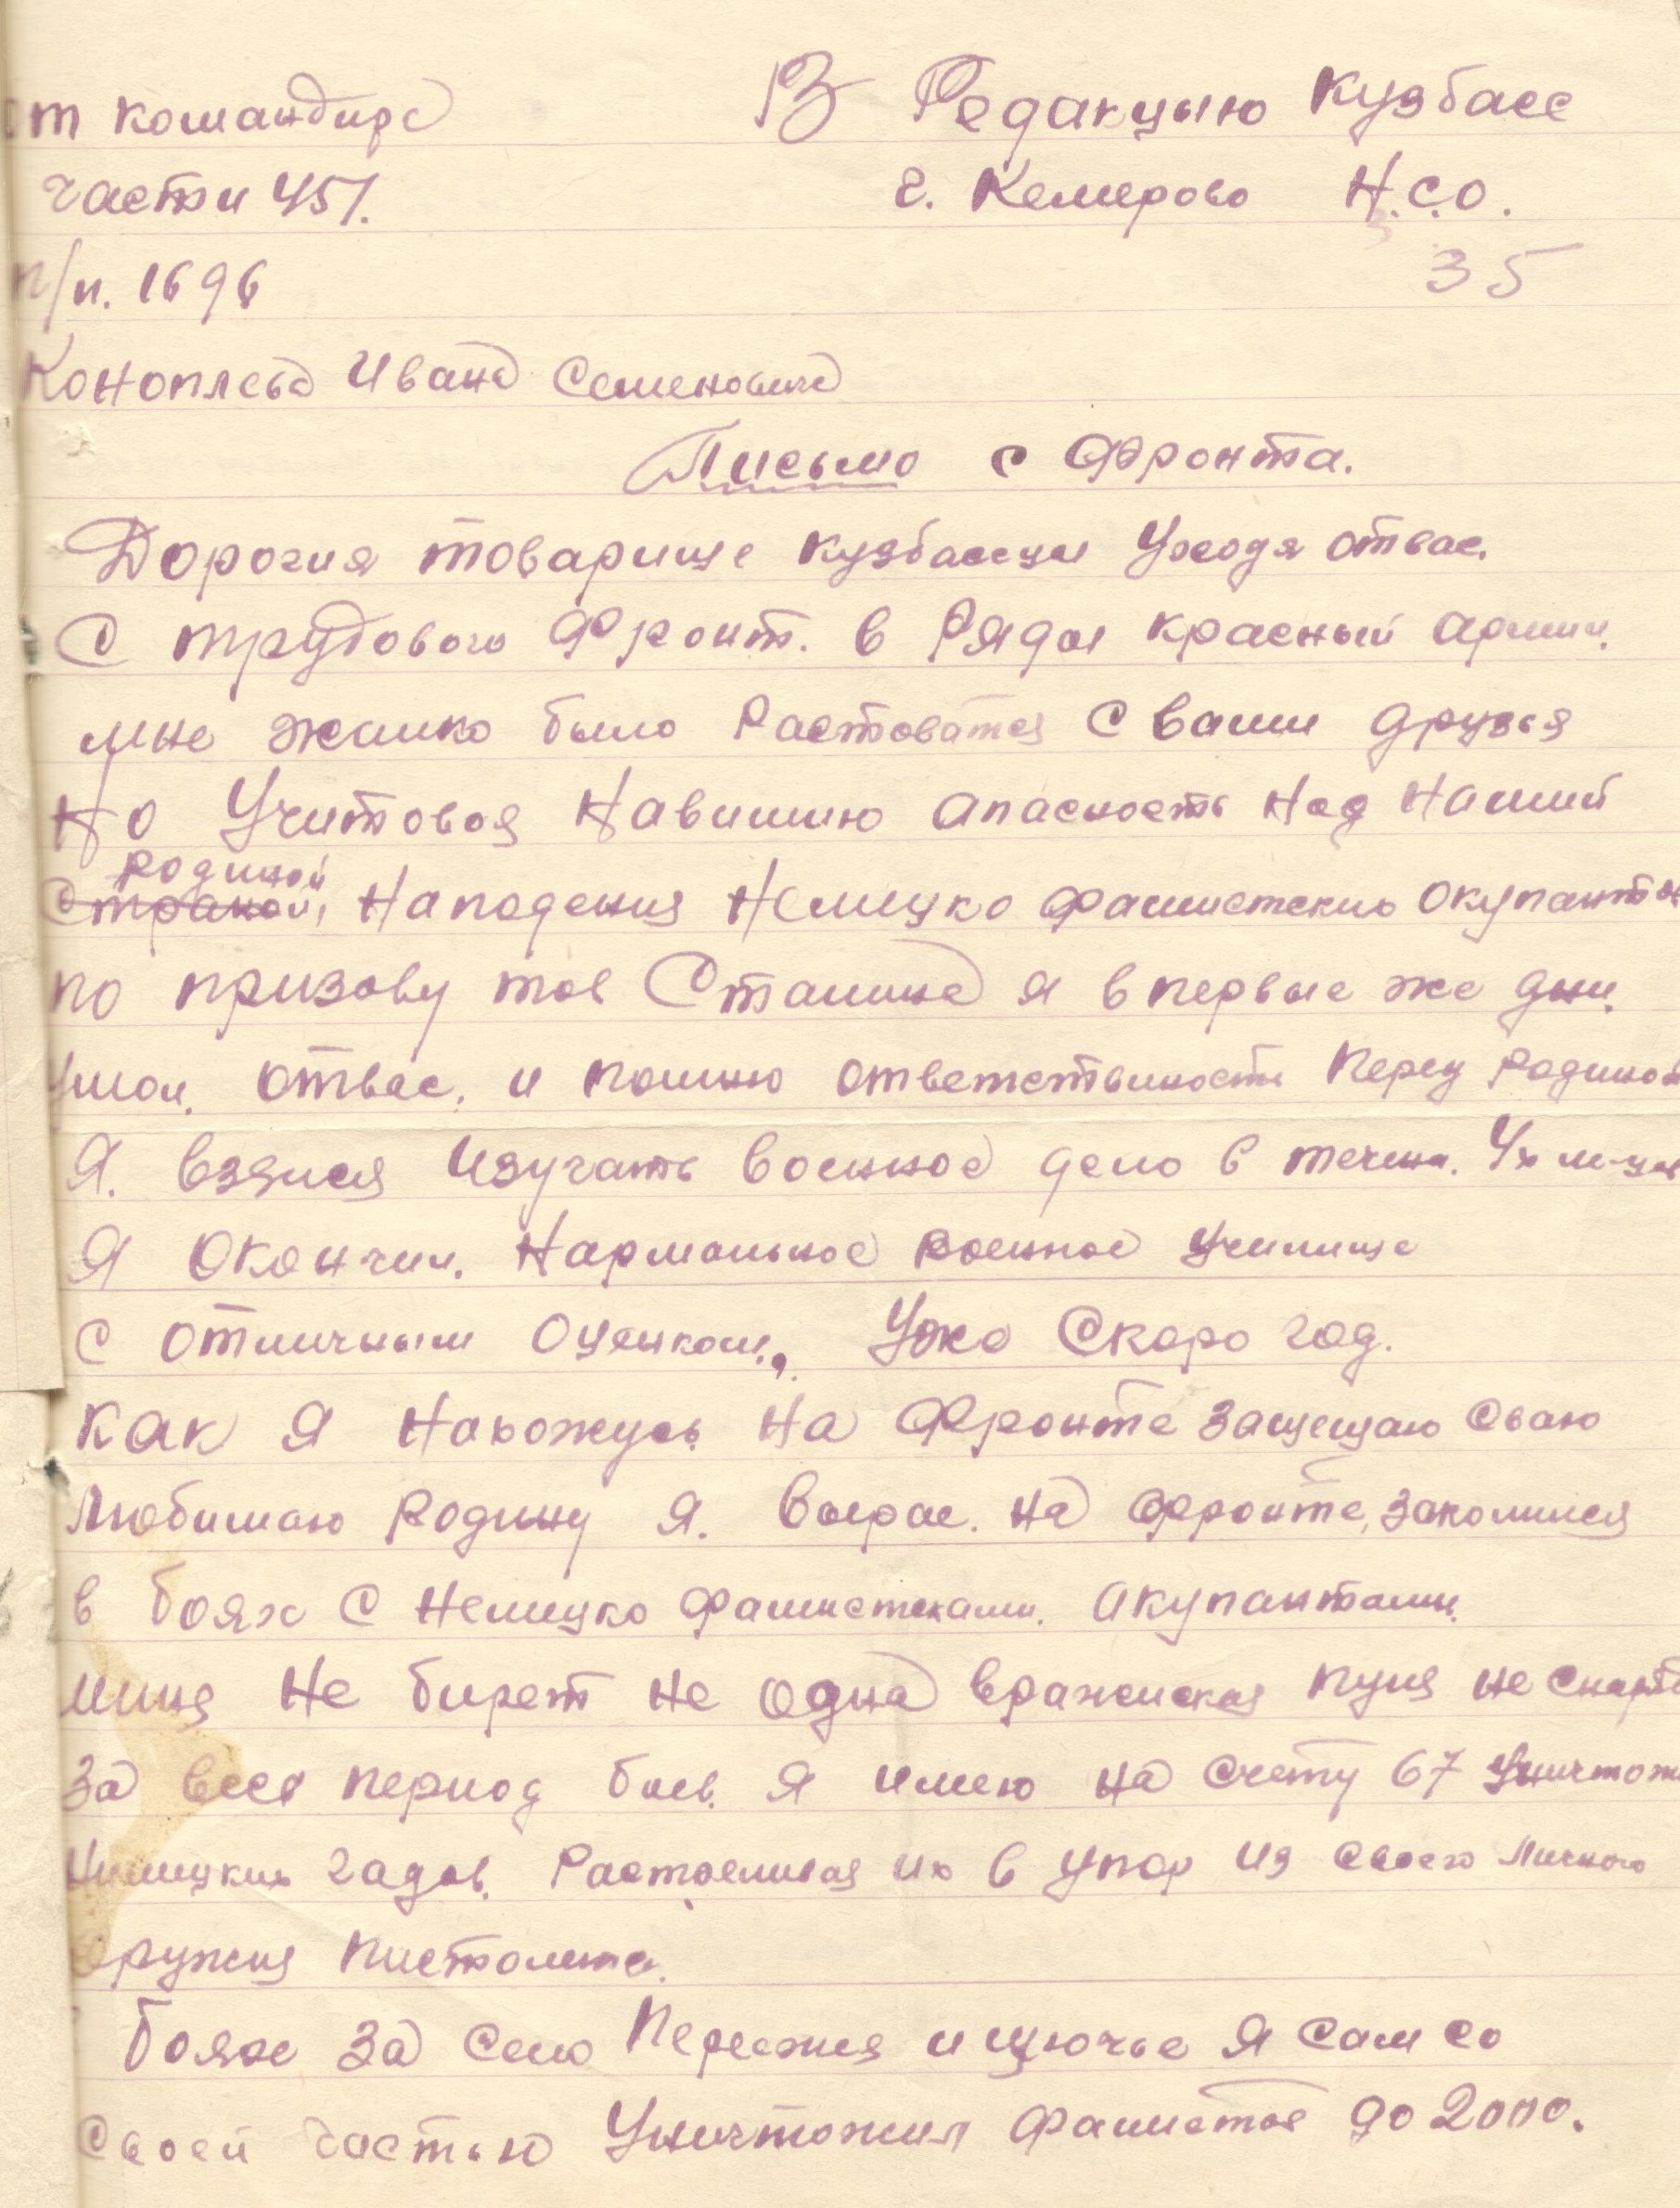 от командира В Редакцыю Кузбасс
части 451. г. Кемерово Н.С.О.
п/п. 1696 35
Коноплева Ивана Семеновича
Письмо с фронта.
Дорогия товарище кузбассцы Уходя отвас.
С трудового фронт. в Ряды красный армии.
мне жалко было Растоватся с вами друзья
Но Учитовоя Нависшию апасность Над Нашей
родиной
Страной, Наподения Немецко фашистских окупантов
по призову тов Сталина я в первые же дни.
ушол. отвас. и помню ответственность перед родиной
Я. взялся изучать военное дело в течени. 4х м-цев
Я Окончил. Нармальное военное училище
с отличным оценком., Уже Скоро год.
как я Нахожусь на фронте защещаю сваю
любимаю Родину я. вырас. на фронте, заколился
в боях с немецко фашистскими. акупантами.
миня Не бирет не одна вражеская пуля не снаряд
За весь период боев. я имею на счету 67 уничтож
Нимецких гадов. Растреливая их в упор из своего личного
оружия пистолета.
боях за село Переежея и щючье я сам со
своей частью Уничтожил фашистов до 2000.